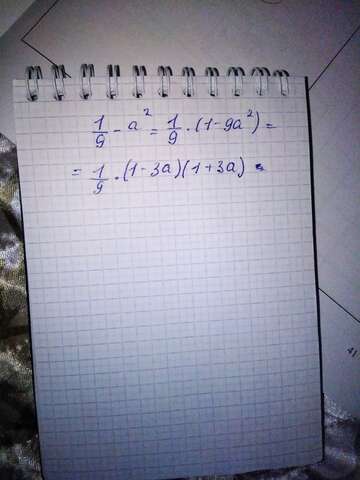 1/9 - a² = 1/9 · (1-9a²) =
= 1/9 · (1-3a)(1+3a)